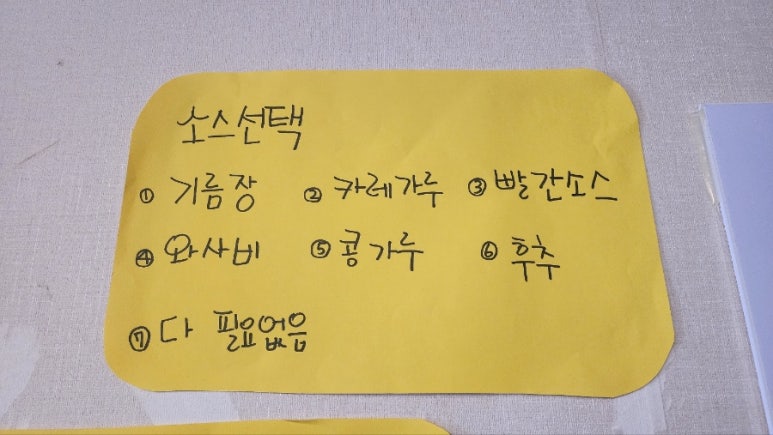 소스선택
① 기름장 ② 카레가루 ③ 빨간소스
④ 와사비 ⑤ 콩가루 ⑥ 후추
⑦ 다 필요없음